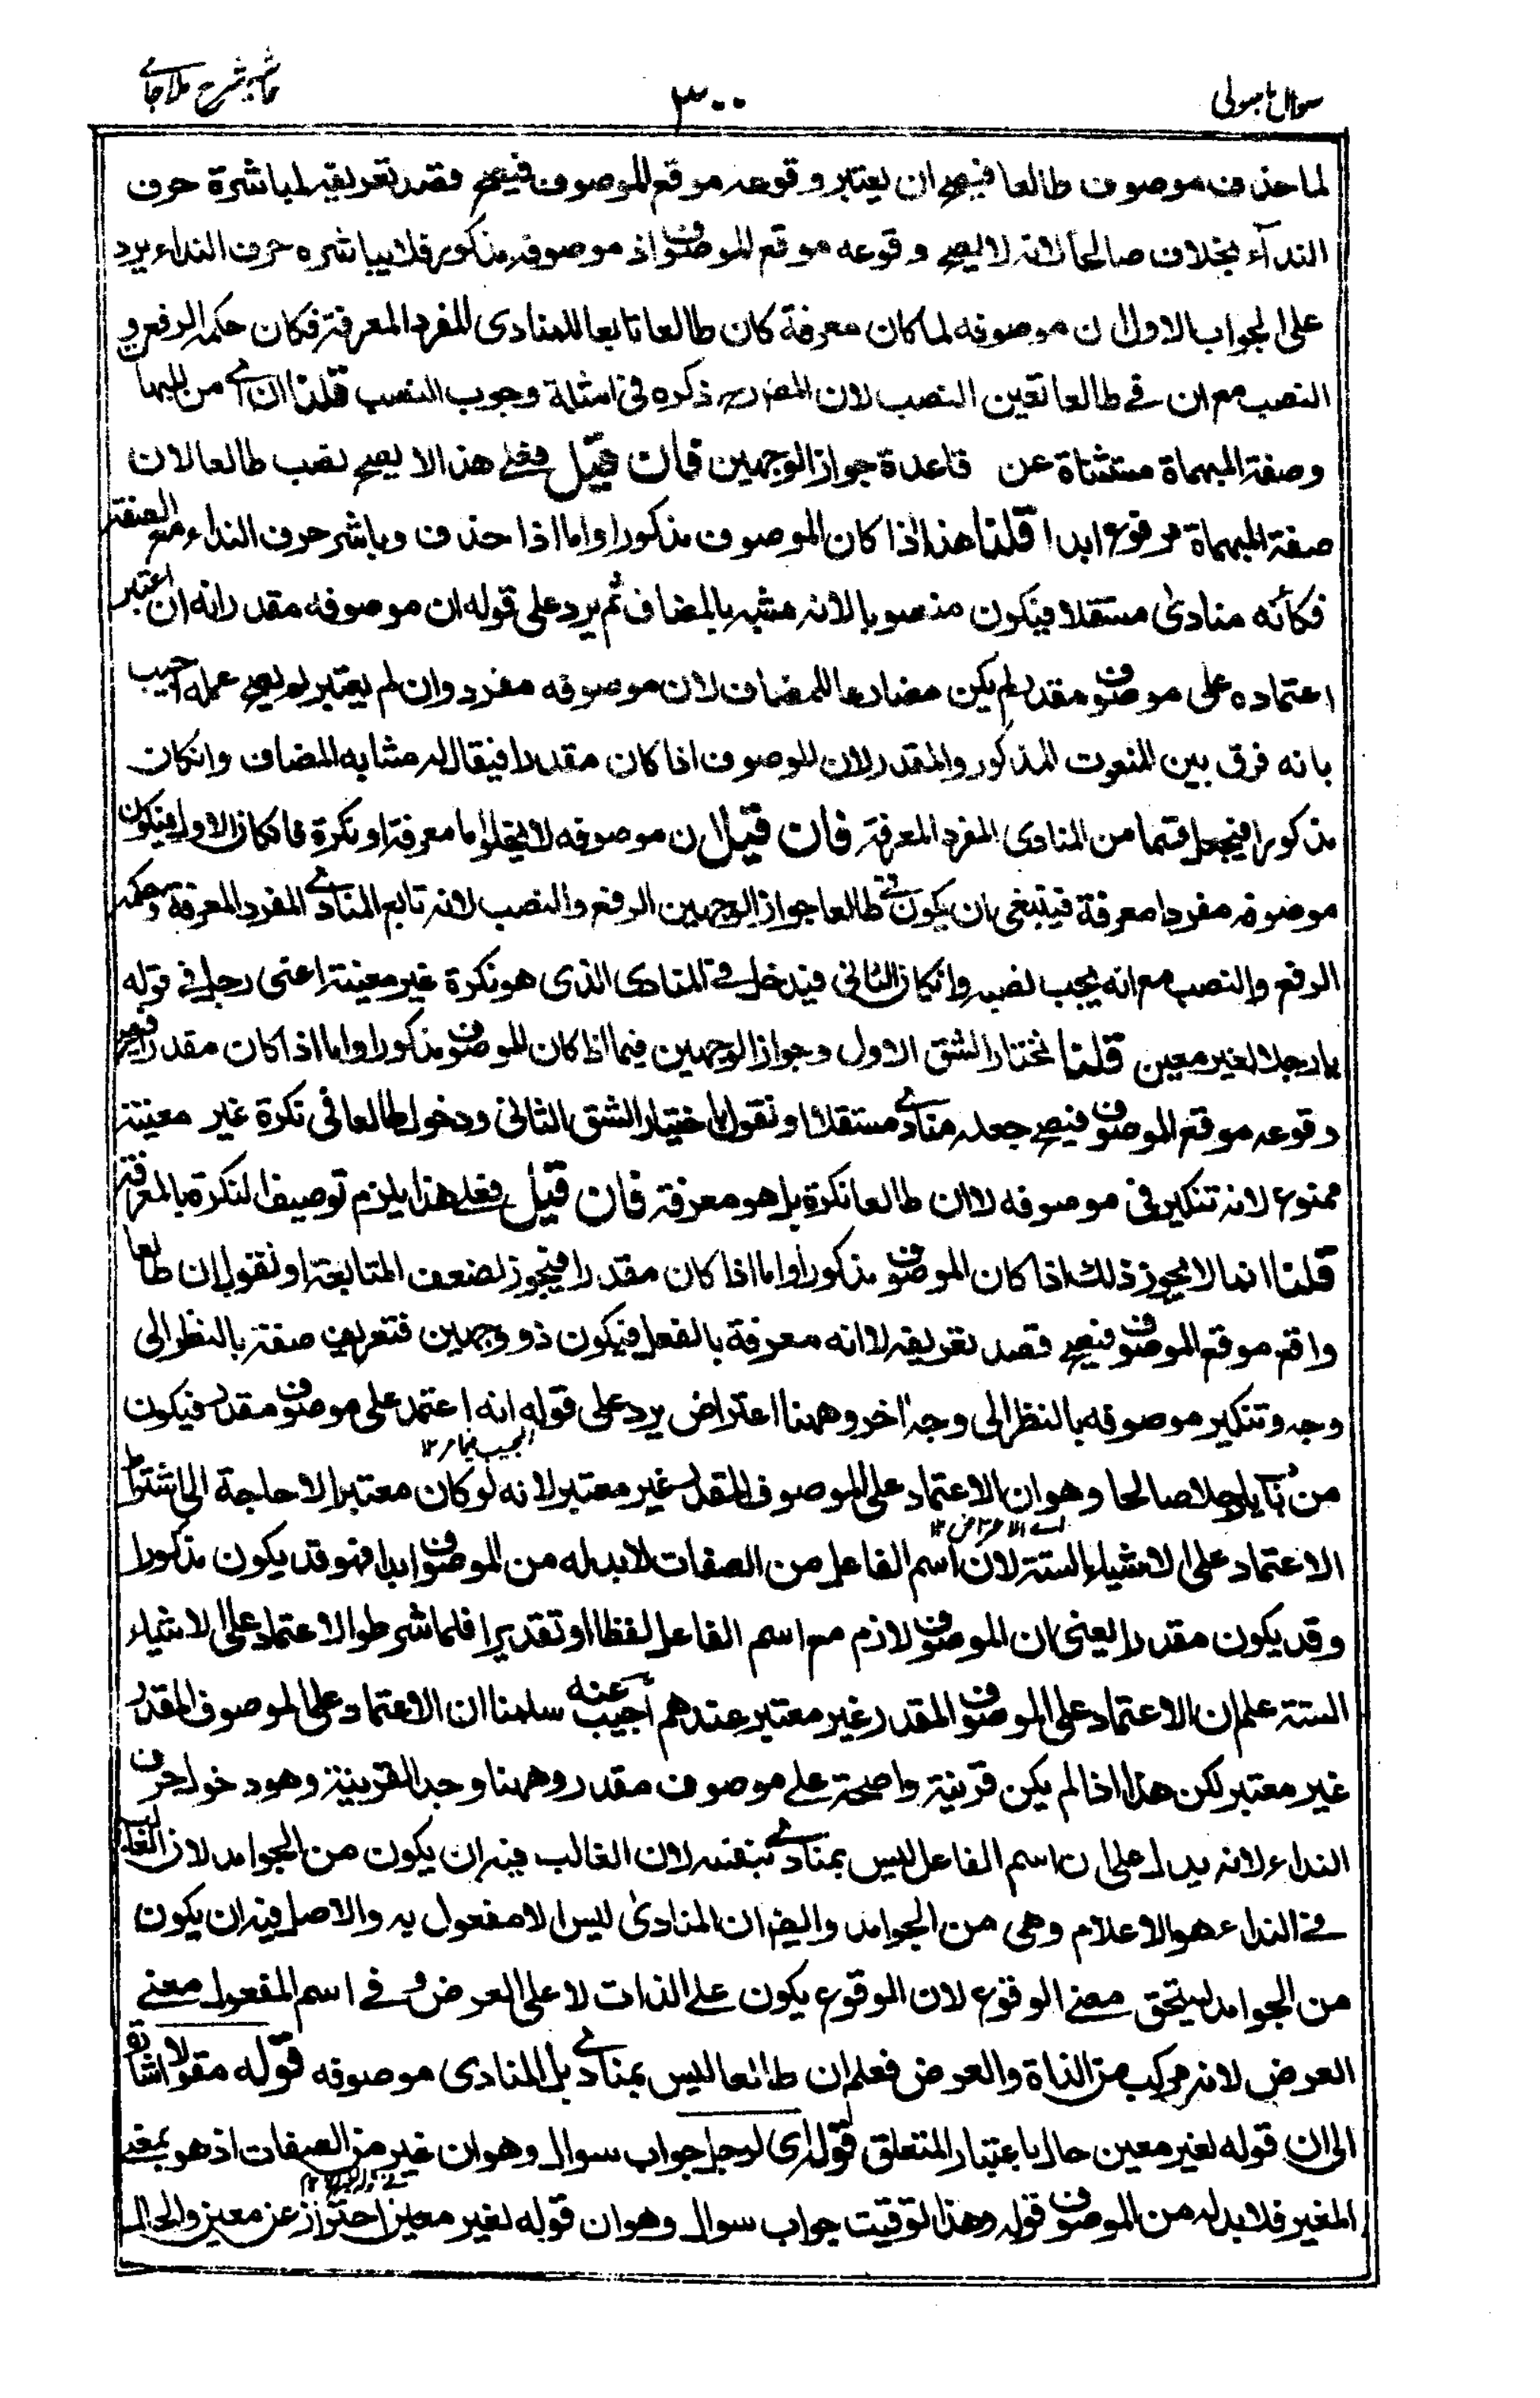 سوال باسولی
٣٠٠
حاشیہ شرح ملا جامے
لما حذف موصوف طالعا فيصح ان يعتبر وقوعه موقع الموصوف فيصح قصد تعريفه لمباشرة حرف
النداء بخلاف صالحا لانه لا يصح وقوعه موقع الموصوف اذ موصوفه مذكور فلا يباشره حرف النداء يرد
على الجواب الاول ان موصوفه لما كان معرفة كان طالعا تابعا للمنادى المفرد المعرفة فكان حكمه الرفع و
النصب مع ان في طالعا تعين النصب لان المضر ذكره في امثلة وجوب النصب قلنا ان من المبهمات
وصفة المبهماة مستثناة عن قاعدة جواز الوجهين فان قيل فعلى هذا لا يصح نصب طالعا لان
صفة المبهماة مرفوع ابدا قلنا هذا اذا كان الموصوف مذكورا واما اذا حذف وباشر حرف النداء مع الصفة
فكأنه منادى مستقلا فيكون منصوبا لانه مشبه بالمضاف ثم يرد على قوله ان موصوفه مقدر انه ان اعتبر
اعتماده على موصوف مقدر لم يكن مضارعا للمضاف لان موصوفه مفرد وان لم يعتبر لم يصح عمله اجيب
بانه فرق بين النعوت المذكور والمقدر لان الموصوف اذا كان مقدرا فيقال له مشابه المضاف وانكان
مذكورا فيجعل قسما من المنادى المفرد المعرفة فان قيل ان موصوفه لا يخلو اما معرفة او نكرة فانكان الاول فيكون
موصوفه مفردا معرفة فينبغي ان يكون في طالعا جواز الوجهين الرفع والنصب لانه تابع المنادى المفرد المعرفة وحكمه
الرفع والنصب مع انه يجب نصبه وانكان الثاني فيدخل في المنادى الذى هو نكرة غير معينة اعنى رجل في قوله
يا رجلا لغير معين قلنا نختار الشق الاول وجواز الوجهين فيما اذا كان الموصوف مذكورا واما اذا كان مقدرا فيصح
وقوعه موقع الموصوف فيصح جعله منادى مستقلا او نقول باختيار الشق الثاني ودخول طالعا في نكرة غير معينة
ممنوع لانه تنكير في موصوفه لا ان طالعا نكرة بل هو معرفة فان قيل فعلى هذا يلزم توصيف النكرة بالمعرفة
قلنا انما لا يجوز ذلك اذا كان الموصوف مذكورا واما اذا كان مقدرا فيجوز لضعف المتابعة او نقول ان طالعا
واقع موقع الموصوف فيصح قصد تعريفه لا انه معرفة بالفعل فيكون ذو وجهين فتعريف صفة بالنظر الى
وجه وتنكير موصوفه بالنظر الى وجه اخر وههنا اعتراض يرد على قوله انه اعتمد على موصوف مقدر فيكون
المجيب فيما مر ١٢
من باب يا رجلا صالحا وهو ان الاعتماد على الموصوف المقدر غير معتبر لانه لو كان معتبرا لا حاجة الى اشتراط
اى الاعتراض ١٢
الاعتماد على الاشياء الستة لان اسم الفاعل من الصفات لا بد له من الموصوف ابدا فهو قد يكون مذكورا
وقد يكون مقدرا يعنى ان الموصوف لازم مع اسم الفاعل لفظا او تقديرا فلما شرطوا الاعتماد على الاشياء
الستة علم ان الاعتماد على الموصوف المقدر غير معتبر عندهم اجيب عنه سلمنا ان الاعتماد على الموصوف المقدر
غير معتبر لكن هذا اذا لم يكن قرينة واضحة على موصوف مقدر وههنا وجد القرينة وهو دخول حرف
النداء لانه يدل على ان اسم الفاعل ليس بمنادى بنفسه لان الغالب فيه ان يكون من الجوامد لان الغالب
في النداء هو الاعلام وهى من الجوامد وايضا ان المنادى ليس الا مفعول به والاصل فيه ان يكون
من الجوامد ليتحق معنى الوقوع لان الوقوع يكون على الذات لا على العرض وفي اسم المفعول معنى
العرض لانه مركب من الذاة والعرض فعلم ان طالعا ليس بمنادى بل المنادى موصوفه قوله مقولا اشارة
الى ان قوله لغير معين حال باعتبار المتعلق قوله اى لرجل جواب سوال وهو ان غير من الصفات اذ هو بمعنى
المغير فلا بد له من الموصوف قوله وهذا توقيت جواب سوال وهو ان قوله لغير معين احتراز عن معين والحال